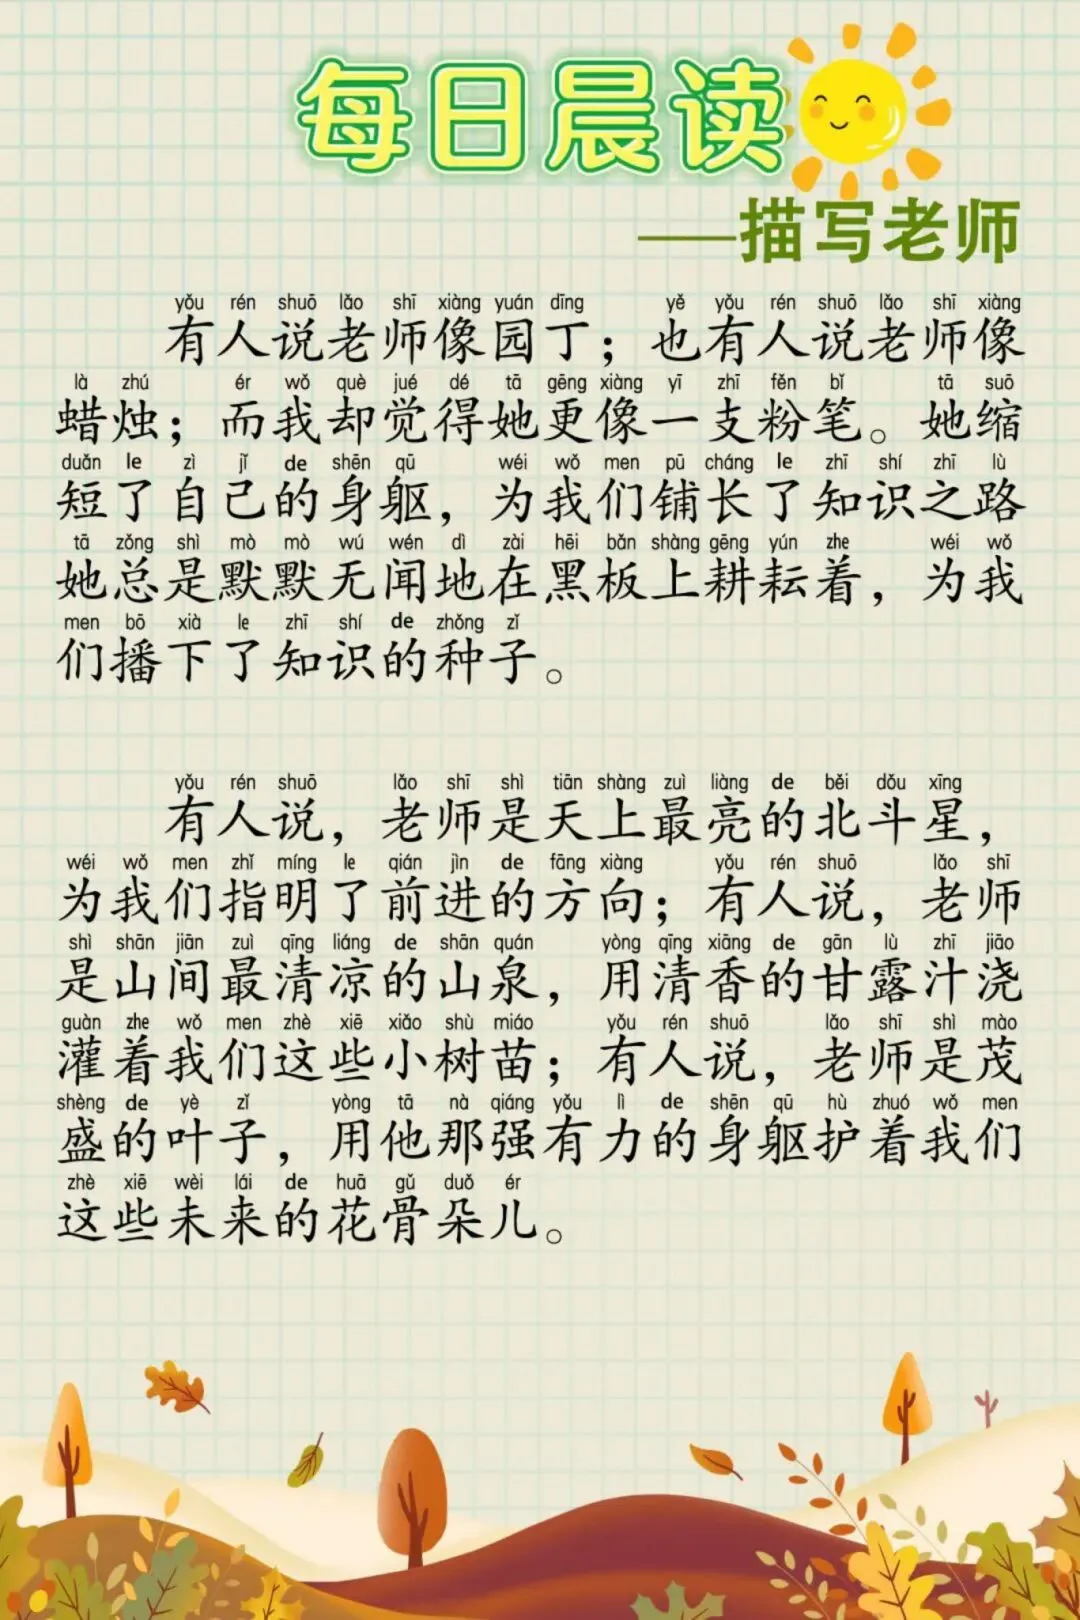 每日晨读
——描写老师
yǒu rén shuō lǎo shī xiàng yuán dīng yě yǒu rén shuō lǎo shī xiàng
有人说老师像园丁；也有人说老师像
là zhú ér wǒ què jué dé tā gēng xiàng yī zhī fěn bǐ tā suō
蜡烛；而我却觉得她更像一支粉笔。她缩
duǎn le zì jǐ de shēn qū wéi wǒ men pū cháng le zhī shí zhī lù
短了自己的身躯，为我们铺长了知识之路
tā zǒng shì mò mò wú wén dì zài hēi bǎn shàng gēng yún zhe wéi wǒ
她总是默默无闻地在黑板上耕耘着，为我
men bō xià le zhī shí de zhǒng zǐ
们播下了知识的种子。
yǒu rén shuō lǎo shī shì tiān shàng zuì liàng de běi dǒu xīng
有人说，老师是天上最亮的北斗星，
wéi wǒ men zhǐ míng le qián jìn de fāng xiàng yǒu rén shuō lǎo shī
为我们指明了前进的方向；有人说，老师
shì shān jiān zuì qīng liáng de shān quán yòng qīng xiāng de gān lù zhī jiāo
是山间最清凉的山泉，用清香的甘露汁浇
guàn zhe wǒ men zhè xiē xiǎo shù miáo yǒu rén shuō lǎo shī shì mào
灌着我们这些小树苗；有人说，老师是茂
shèng de yè zǐ yòng tā nà qiáng yǒu lì de shēn qū hù zhuó wǒ men
盛的叶子，用他那强有力的身躯护着我们
zhè xiē wèi lái de huā gǔ duǒ ér
这些未来的花骨朵儿。